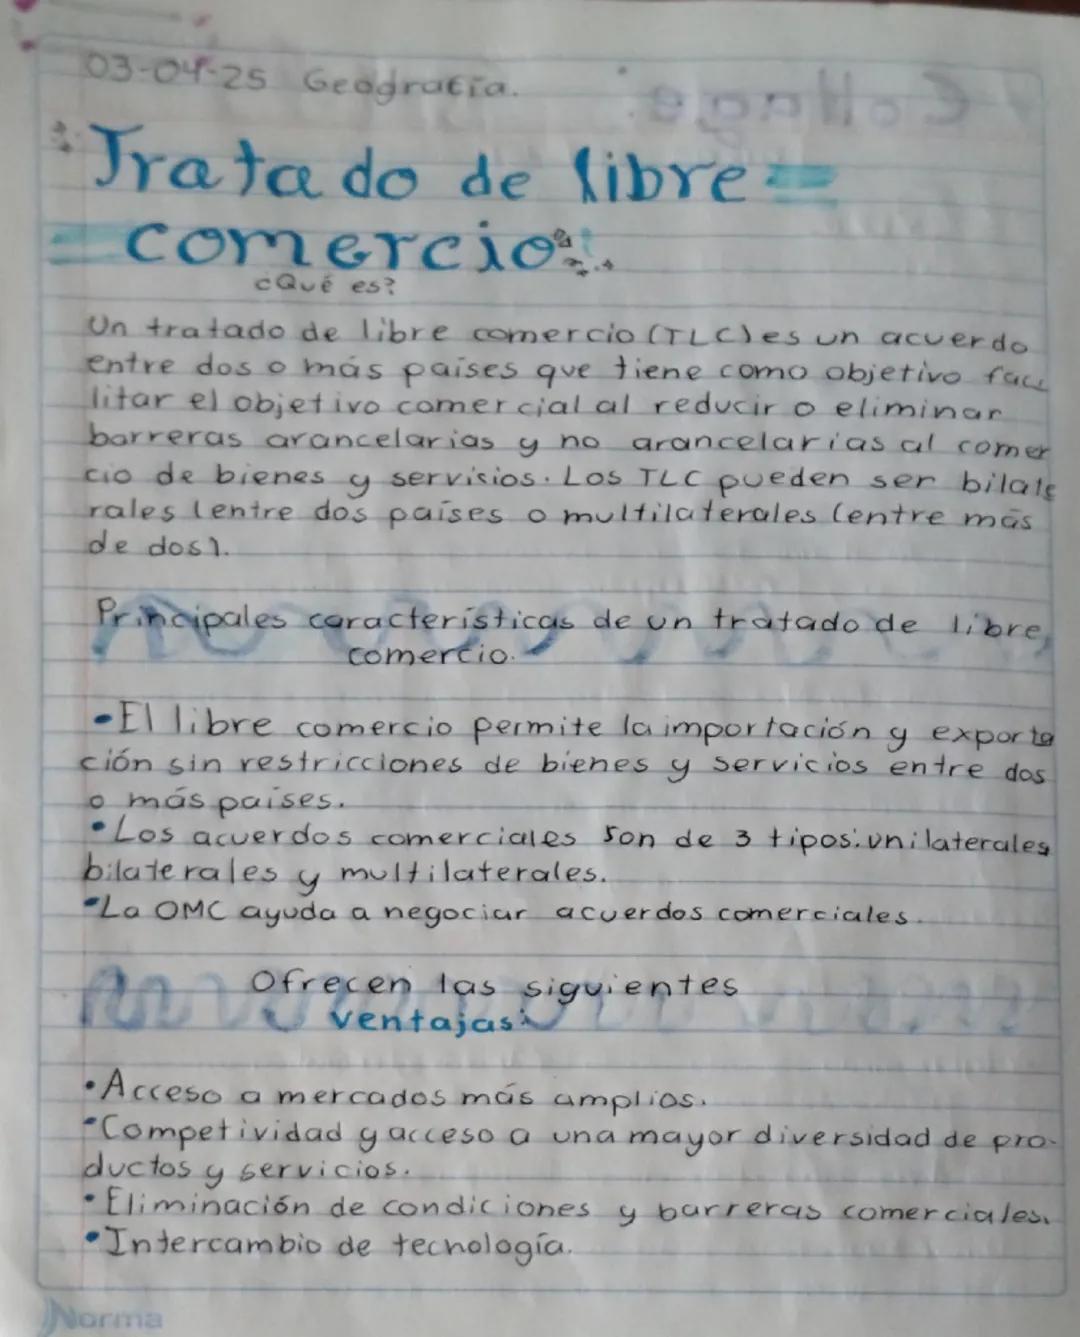 03-04-25 Geografía.
Tratado de libre
comercio
¿Qué es?
Un tratado de libre comercio (TLC) es un acuerdo
entre dos o más países que tiene como objetivo faci
litar el objetivo comercial al reducir o eliminar
barreras arancelarias y no arancelarias al comer
cio de bienes y servisios. Los TLC pueden ser bilate
rales (entre dos países o multilaterales (entre más
de dos).
Principales características de un tratado de libre
comercio.
•El libre comercio permite la importación y exporta
ción sin restricciones de bienes y servicios entre dos
o más países.
•Los acuerdos comerciales son de 3 tipos: unilaterales
bilaterales y multilaterales.
•La OMC ayuda a negociar acuerdos comerciales.
Ofrecen las siguientes
ventajas:
•Acceso a mercados más amplios.
•Competividad y acceso a una mayor diversidad de pro-
ductos y servicios.
•Eliminación de condiciones y barreras comerciales.
•Intercambio de tecnología.
Norma